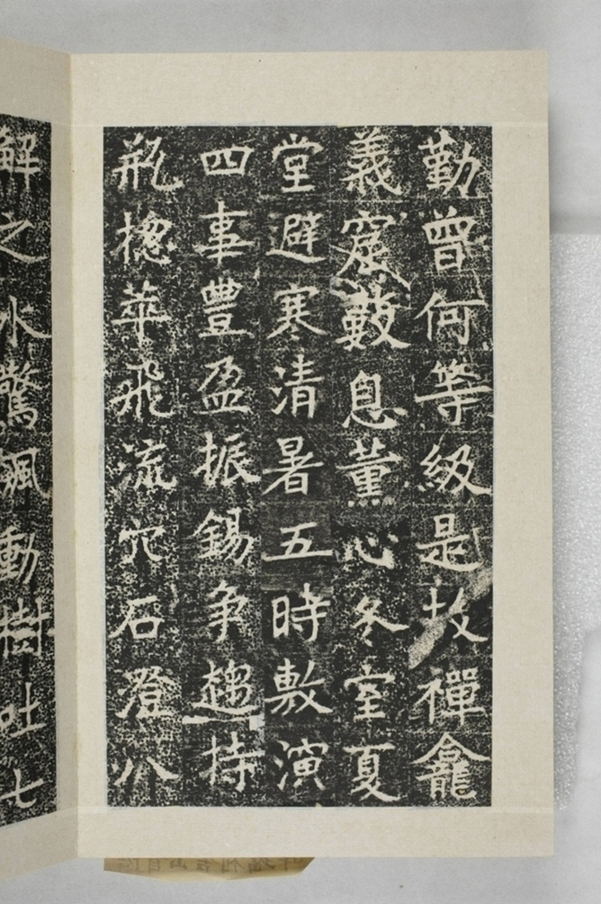 勤曾何等級是故禪龕
義窟藪息薫心冬室夏
堂避寒清暑五時敷演
四事豊盈振錫争趍持
瓶揔萃飛流穴石澄八
解之水驚颯動樹吐七